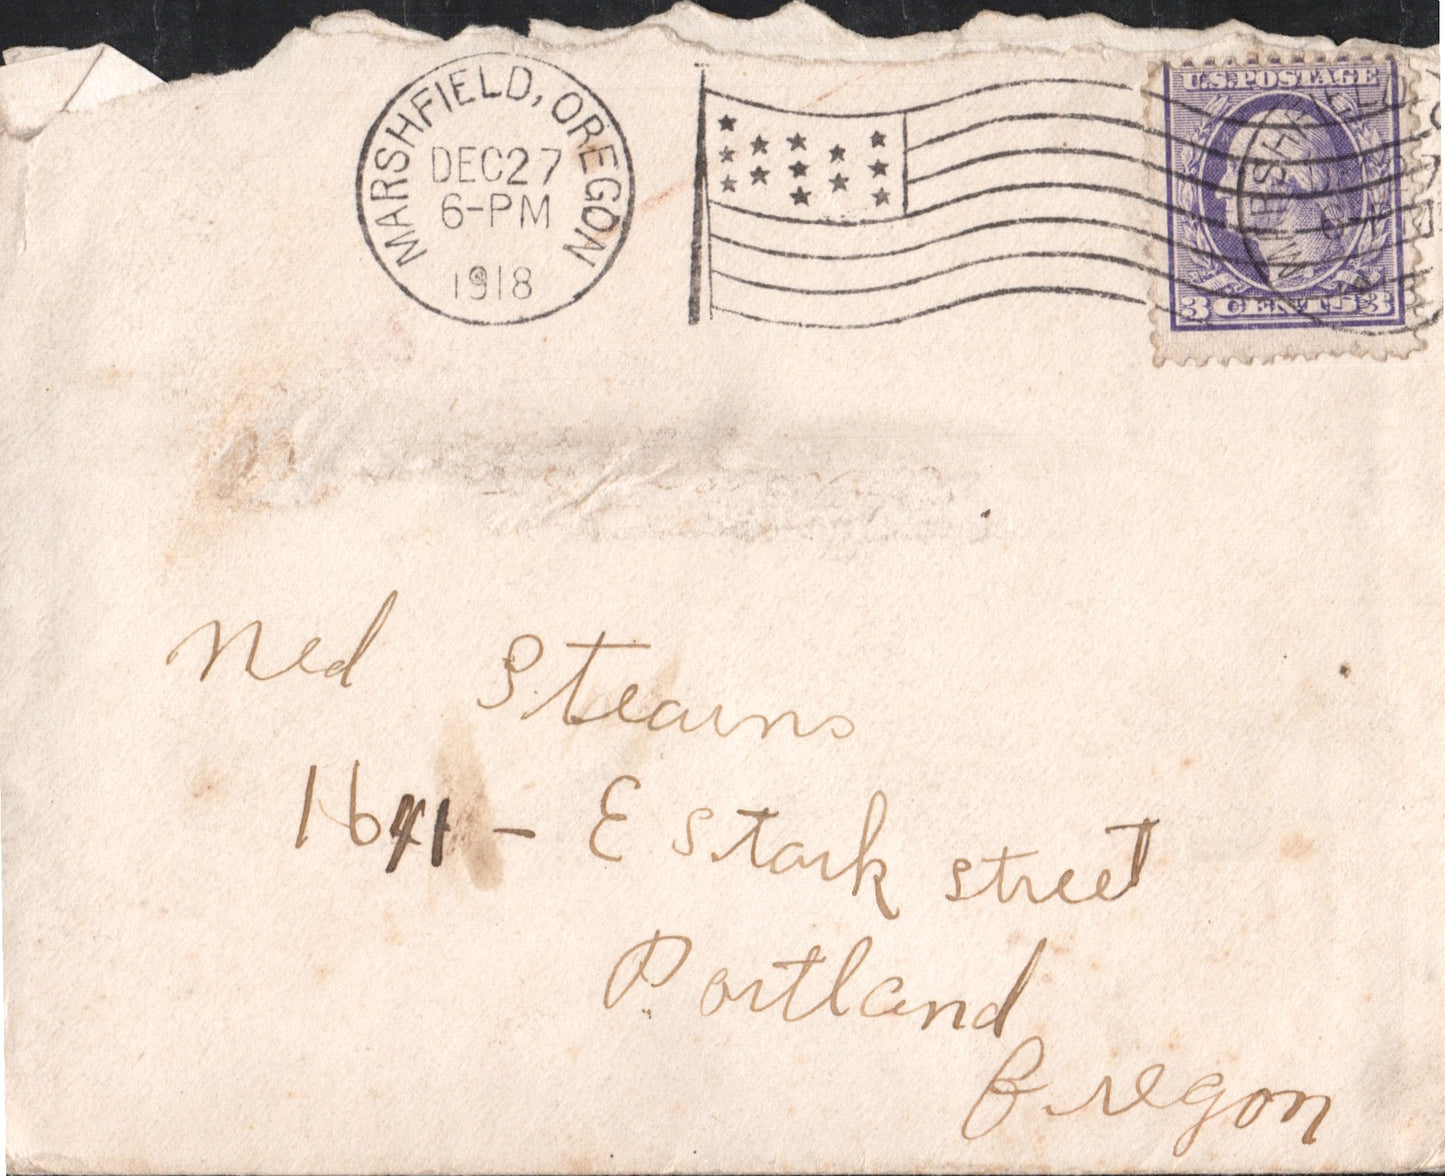 MARSHFIELD, OREGON
DEC 27
6-PM
1918
U.S. POSTAGE
3 CENTS 3
Ned Stearns
1641 - E Stark Street
Portland
Oregon